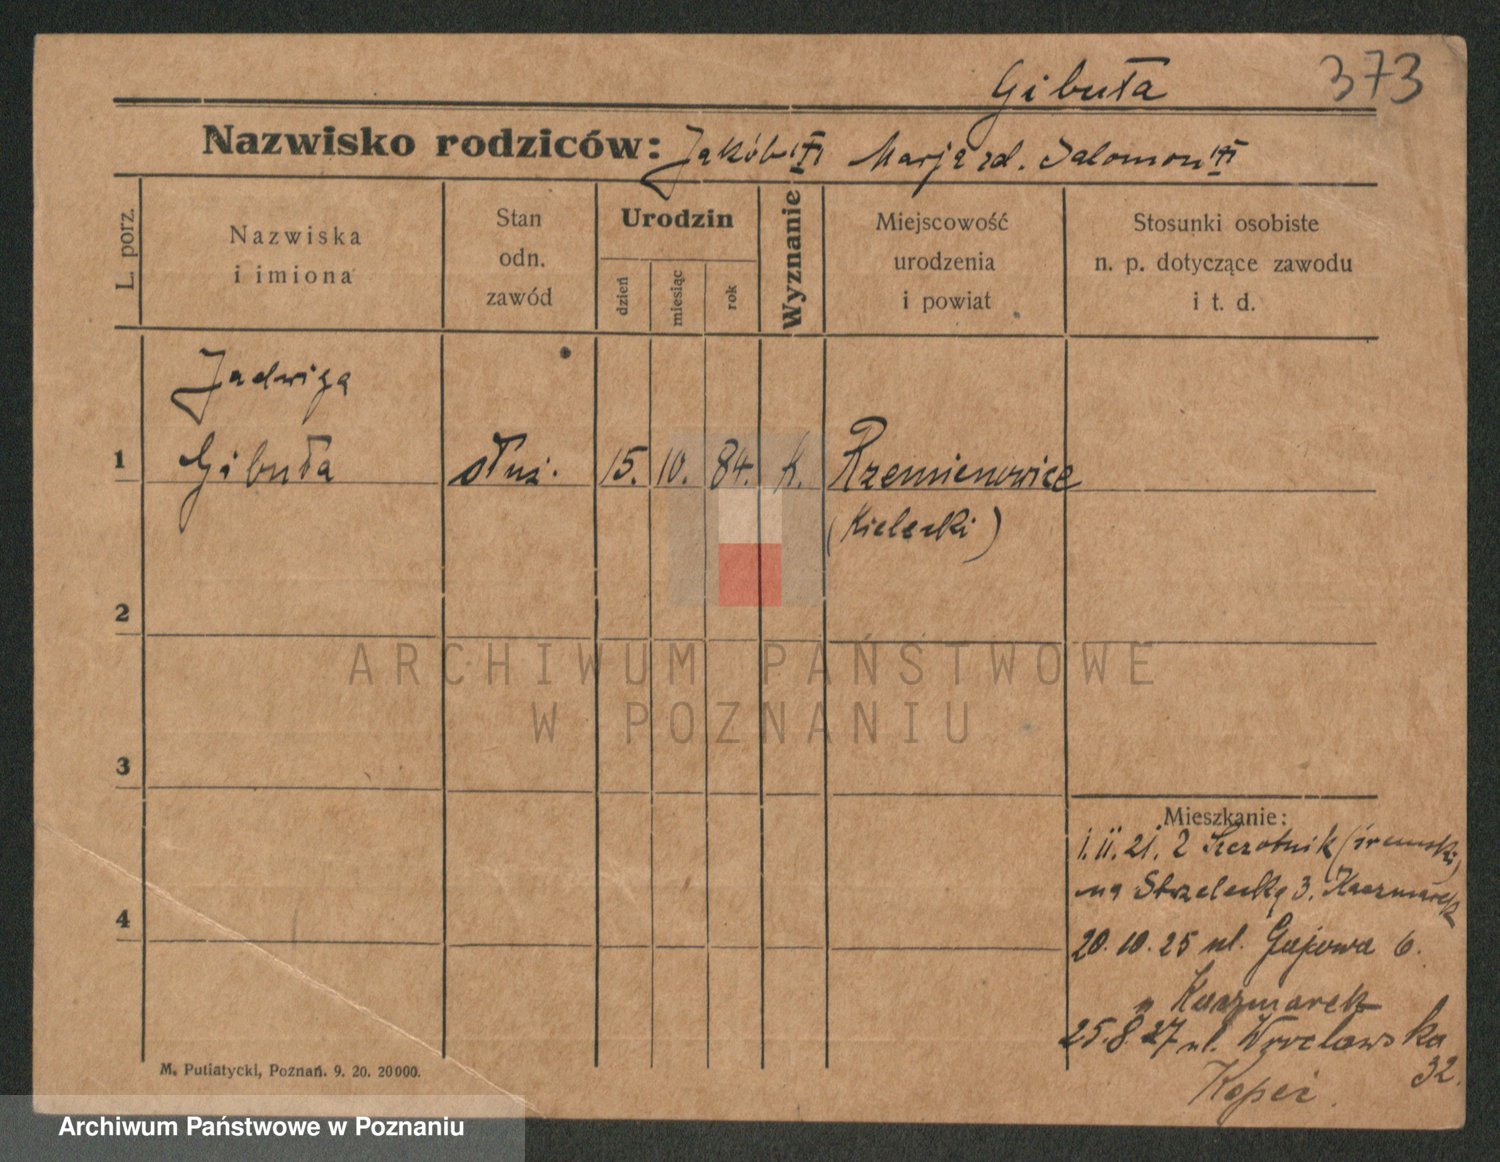 Gibuła 373
Nazwisko rodziców: Jakób Marja zd. Salomon
L. porz.
Nazwiska
i imiona
Stan
odn.
zawód
Urodzin
dzień
miesiąc
rok
Wyznanie
Miejscowość
urodzenia
i powiat
Stosunki osobiste
n. p. dotyczące zawodu
i t. d.
Jadwiga
1 Gibuła służ. 15. 10. 84. k. Rzemienowice
(Kielecki)
2
3
4
ARCHIWUM PAŃSTWOWE
W POZNANIU
Mieszkanie:
1. 11. 21. (śremski)
na Strzelecką 3. Kaczmarek
20. 10. 25 ul. Gajowa 6.
Kaczmarek
25. 8. 27 ul. Wrocławska
32.
M. Putiatycki, Poznań. 9. 20. 20000.
Archiwum Państwowe w Poznaniu